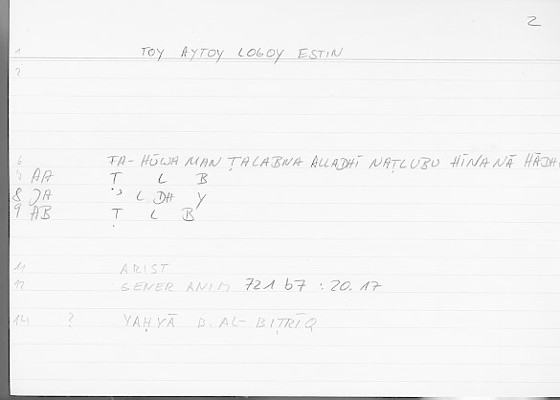 2
1 TOY AYTOY LOGOY ESTIN
2
6 FA-HŪWA MAN ṬALABNA ALLADHĪ NAṬLUBU HĪNA NĀ HĀDH
AA Ṭ L B
8 JA ʾ L DH Y
9 AB Ṭ L B
11 ARIST
12 GENER ANIM 721 b7 : 20.17
14 ? YAḤYĀ B. AL-BIṬRĪQ